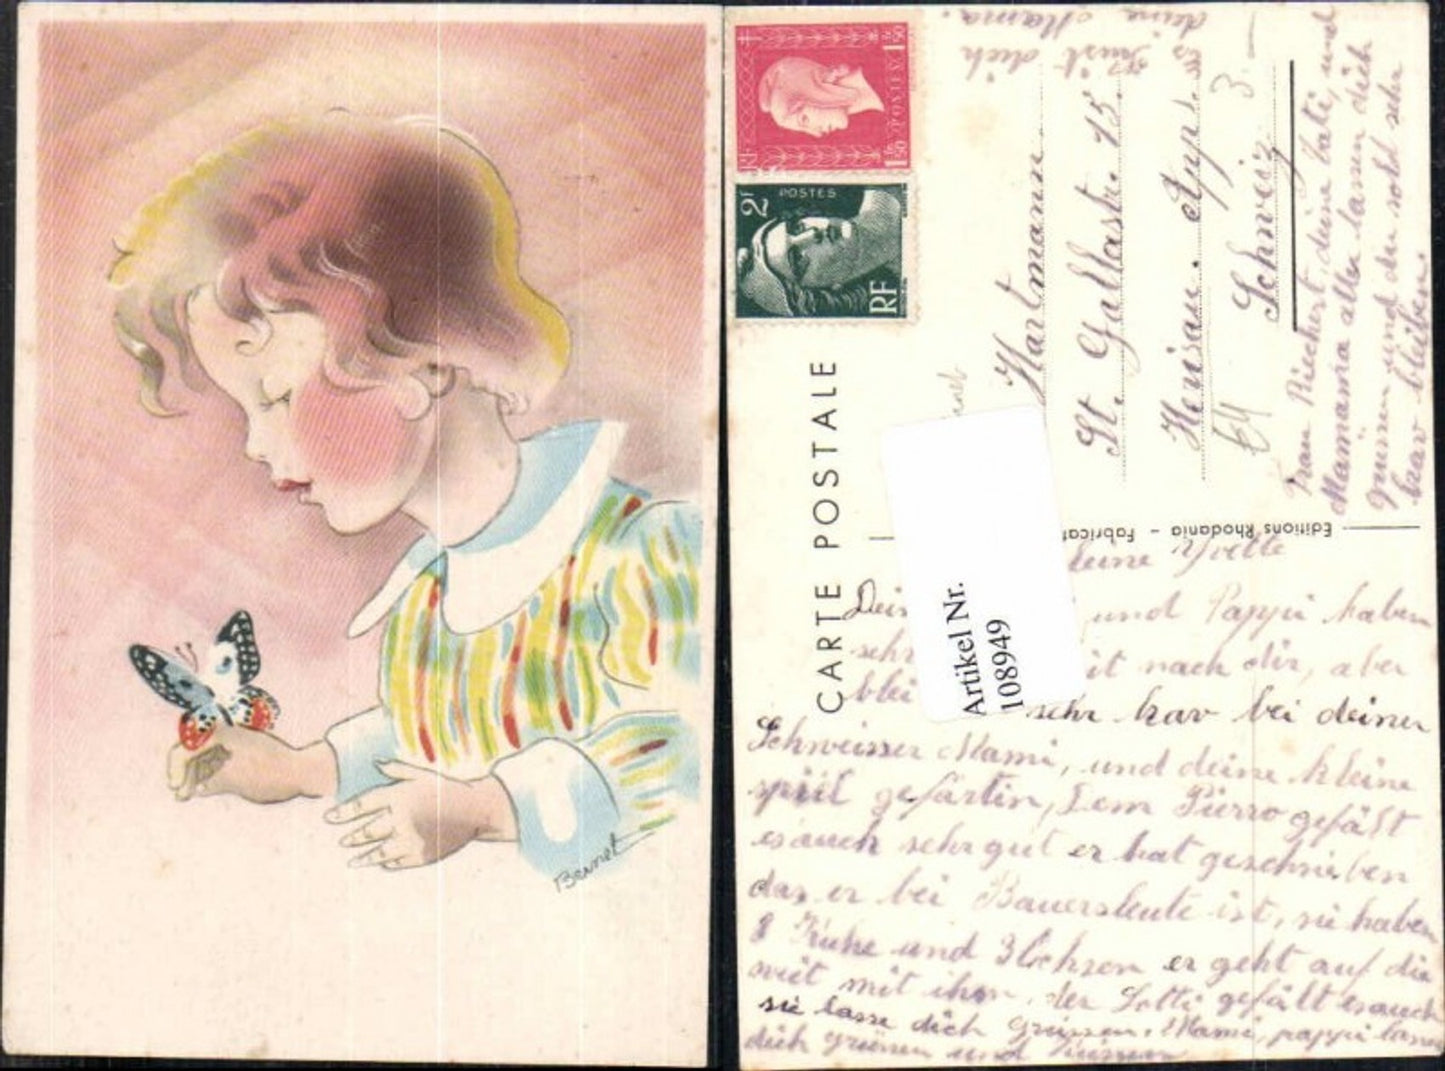 Bernet
RF
1F50
POSTES
1F50
2F
POSTES
RF
CARTE POSTALE
Artikel Nr.
108949
Editions Rhodania - Fabricat
Hartmann
St. Gallastr. 13.
Herisau. App.
Schweiz
es küst dich
deine Mama.
Frau Riechert, deine Kati, und
Mamama alle lassen dich
grüssen und du solst sehr
brav bleiben.
kleine Yvette
Dein und Pappi haben
sehr nach dir, aber
blei sehr brav bei deiner
Schweisser Mami, und deine kleine
spiil gefärtin, Dem Pierro gefällt
es auch sehr gut er hat geschrieben
das er bei Bauersleute ist, sie haben
8 Kühe und 3 Ochsen er geht auf die
weit mit ihm, der Lotti gefällt es auch
sie lasse dich Grüssen. Mami, pappi lassen
dich grüssen und küssen